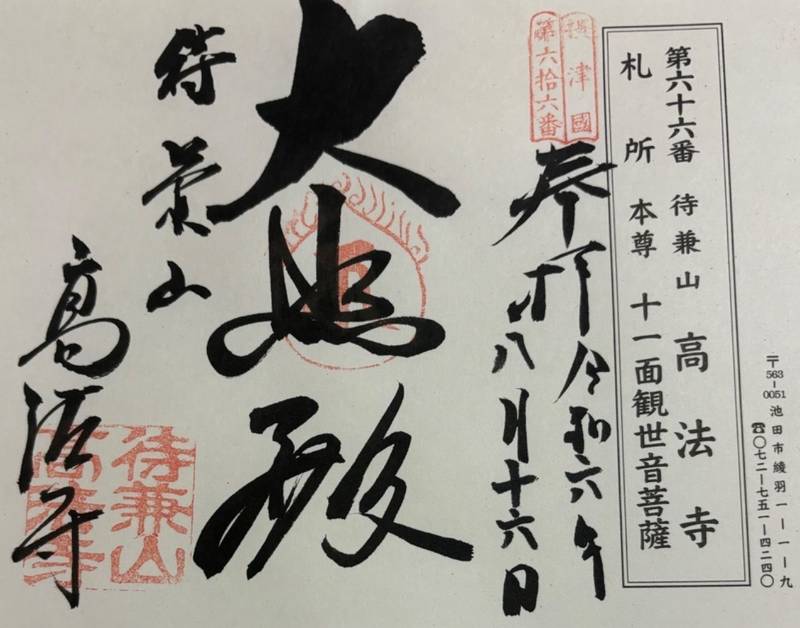 第六十六番 待兼山 高法寺
札所 本尊 十一面観世音菩薩
〒563-0051 池田市綾羽一ー一ー九
☎〇七二ー七五一ー四二四〇
摂津國
第六拾六番
奉拝 令和六年
八月十六日
大悲殿
待兼山
高法寺
待兼山
高法寺